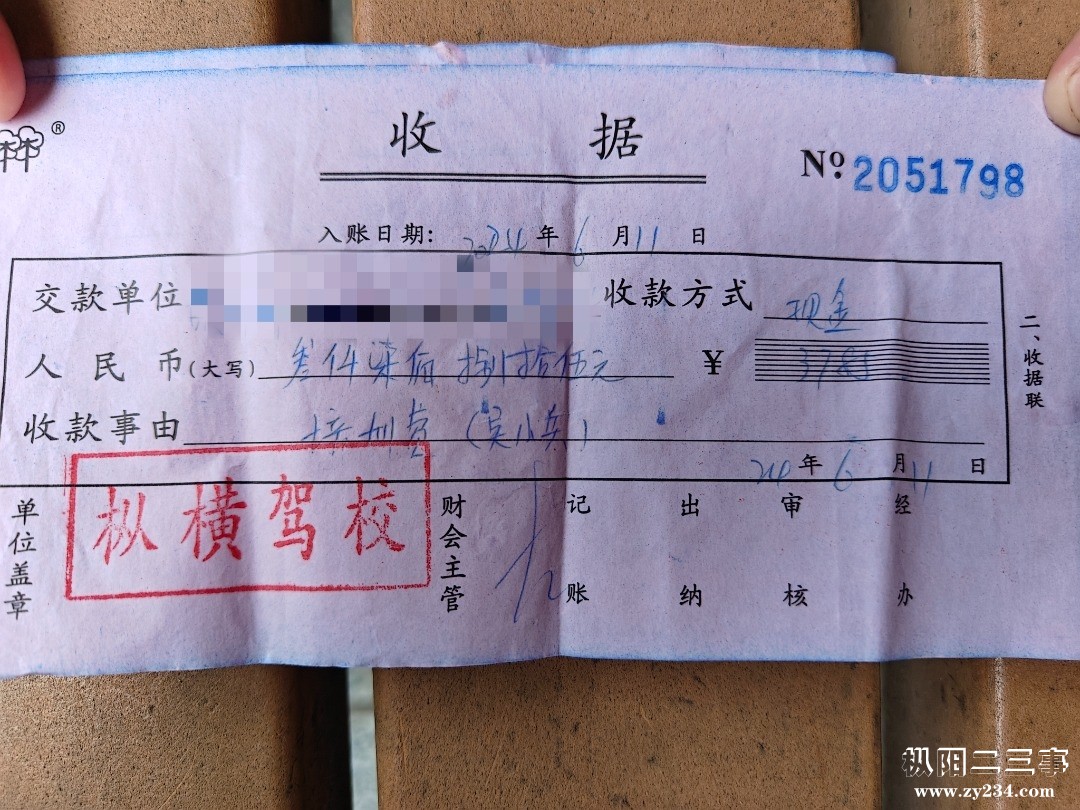 ®
收 据
№ 2051798
入账日期: 2024 年 6 月 11 日
交款单位
收款方式 现金
人民币(大写) 叁仟柒佰捌拾伍元 ¥ 3785
收款事由 培训费 (吴小兵)
24 年 6 月 11 日
二、收据联
单位盖章
枞横驾校
财会主管
记账
出纳
审核
经办
枞阳二三事
www.zy234.com